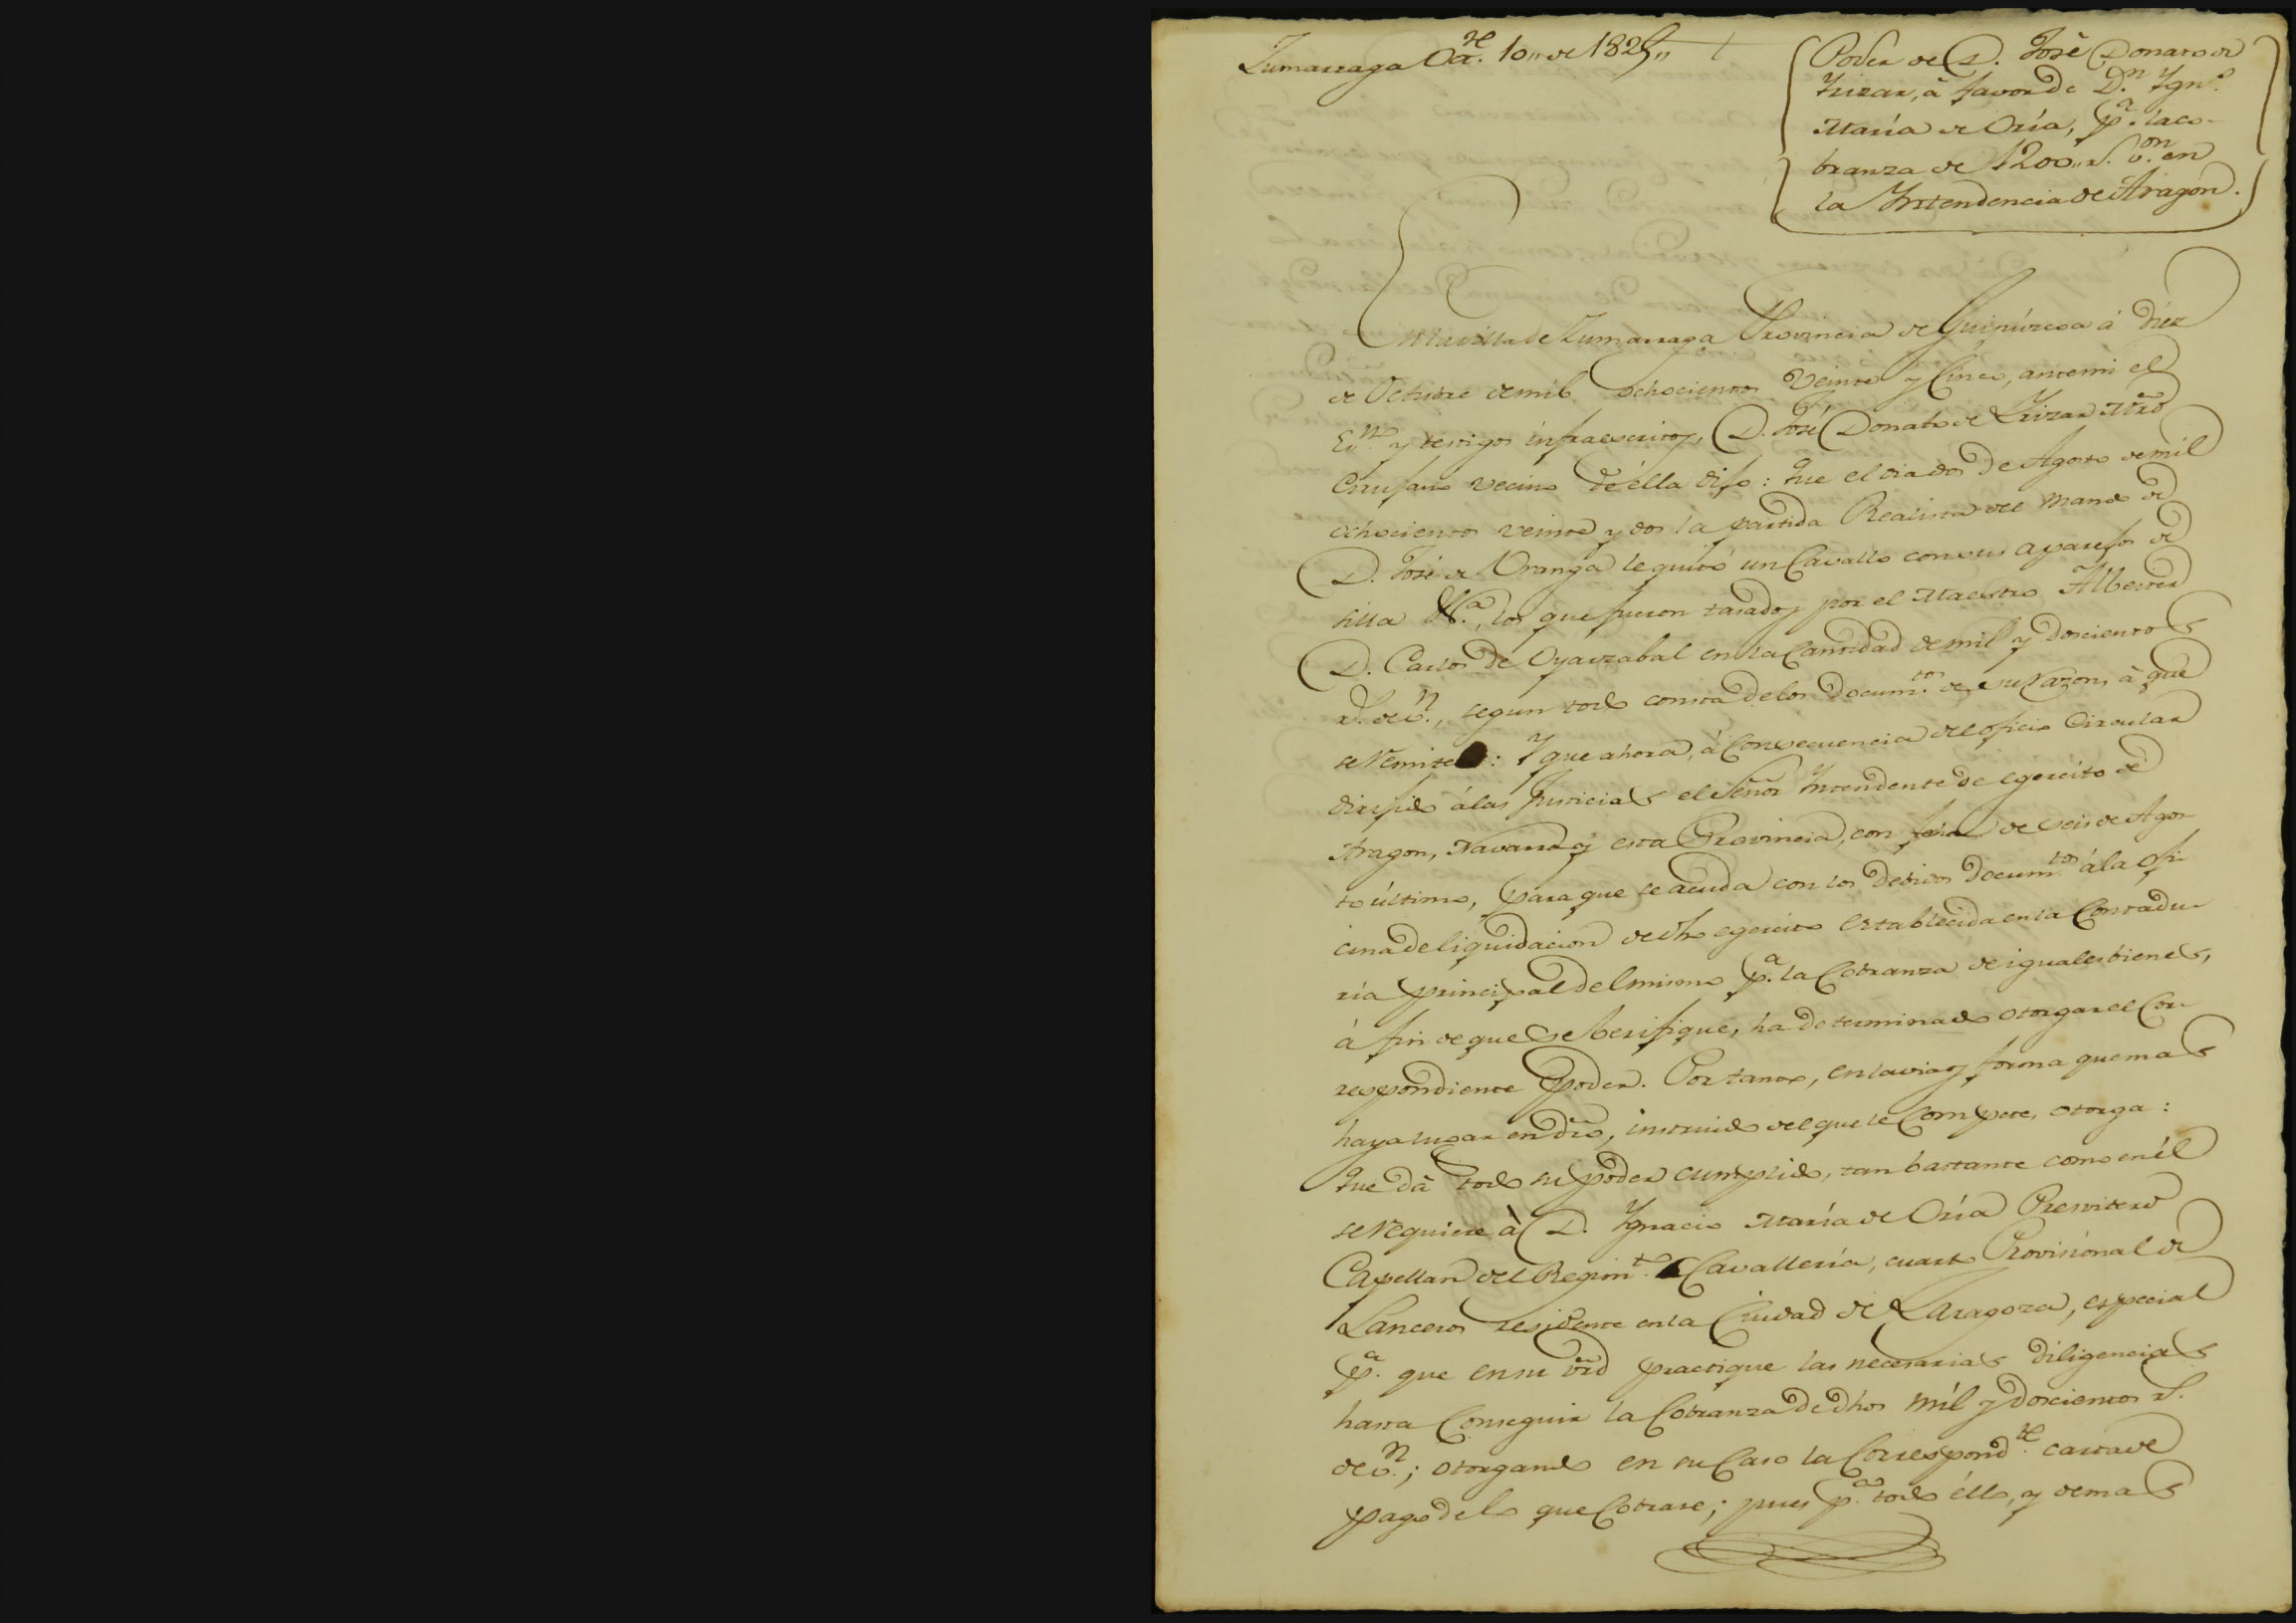 Zumarraga Oct.re 10,, de 1825,,
Poder de D. José Donato de
Irizar, à favor de D.n Ygn.o
María de Oria, p.a la co-
branza de 1200,, r.s v.on en
la Intendencia de Aragon.
En la villa de Zumarraga Provincia de Guipúzcoa á diez
de Octubre de mil ochocientos Veinte y Cinco, ante mi el
Es.no y testigos infraescritos, D. José Donato de Irizar Mro
Cirujano vecino de élla dijo: Que el dia dos de Agosto de mil
ochocientos veinte y dos la partida Realista del mando de
D. José de Uranga le quitó un Cavallo con sus aparejos de
silla &.a, los que fueron tasados por el Maestro Albeiter
D. Carlos de Oyarzabal en la Cantidad de mil y doscientos
r.s de v.n, segun todo consta de los docum.tos de su razon, à que
se remite: Y que ahora, à Consecuencia del oficio Circular
dirijido á las Justicias el Señor Intendente de egercito de
Aragon, Navarra y esta Provincia, con fecha de seis de Agos-
to último, para que se acuda con los devidos docum.tos á la ofi-
cina de liquidacion de dho egercito establecida en la Contadu-
ría principal del mismo p.a la Cobranza de iguales bienes,
á fin de que se berifique, ha determinado otorgar el Cor-
respondiente poder. Por tanto, en la via y forma que mas
haya lugar en dro, instruido del que le Compete, otorga:
Que dà todo su poder cumplido, tan bastante como en él
se requiere à D. Ygnacio María de Oria Presvitero
Capellan del Regim.to Cavallería, cuarto Provisional de
Lanceros residente en la Ciudad de Zaragoza, especial
p.a que en su vrd practique las necesarias diligencias
hasta Conseguir la Cobranza de dhos mil y doscientos r.s
de v.n; otorgando en su Caso la Correspond.te carta de
pago de lo que Cobrare; pues p.a todo éllo, y demas